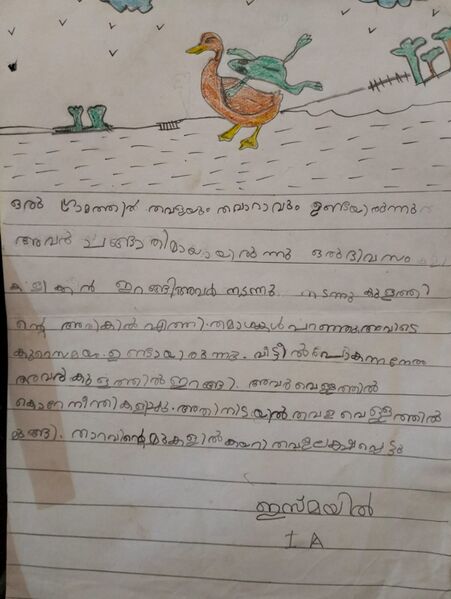 ഒരു ഗ്രാമത്തിൽ തവളയും തവാറാവും ഉണ്ടായിരുന്നു
അവർ ചങ്ങാതിമായായിരുന്നു ഒരുദിവസം
കളിക്കാൻ ഇറങ്ങിഅവർ നടന്നു നടന്നു കുളത്തി
ന്റെ അരികിൽ എത്തി. തമാശകൾ പറഞ്ഞു അവിടെ
കുറെസമയം ഉണ്ടായിരുന്നു. വീട്ടിൽ പോകുന്നനേരം
അവർകുളത്തിൽ ഇറങ്ങി. അവർ വെള്ളത്തിൽ
നീന്തികളിച്ചു. അതിനിടയിൽ തവള വെള്ളത്തിൽ
മുങ്ങി. താറവിന്റെമുകളിൽകയറി തവളരക്ഷപ്പെട്ടു
ഇസ്മയിൽ
I A